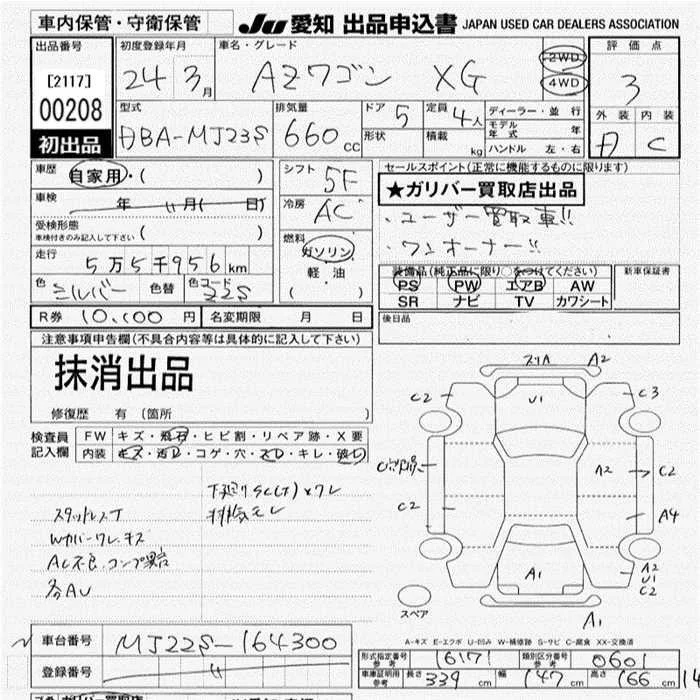 車内保管・守衛保管 JU 愛知 出品申込書 JAPAN USED CAR DEALERS ASSOCIATION
出品番号
[2117]
00208
初出品
初度登録年月 24年 3月
車名・グレード AZワゴン XG
2WD
4WD
評価点 3
外装 内装 C
型式 DBA-MJ23S
排気量 660cc
ドア 5
形状
定員 4人
積載 kg
ディーラー・並行
モデル年式 年
ハンドル 左・右
車歴 自家用・( )
車検 年 月( 日)
受検形態
車検付きのみ記入して下さい ( )
走行 5万5千956km
色 シルバー 色替 色コード Z2S
シフト 5F
冷房 AC
燃料
ガソリン
軽油
( )
セールスポイント(正常に機能するものに限ります)
★ガリバー買取店出品
・ユーザー買取車!!
・ワンオーナー!!
装備品(純正品に限り○をつけてください)
PS PW エアB AW
SR ナビ TV カワシート
新車保証書
後日品
R券 10,000円 名変期限 月 日
注意事項申告欄(不具合内容等は具体的に記入して下さい)
抹消出品
修復歴 有 (箇所 )
検査員記入欄
FW キズ・飛石・ヒビ割・リペア跡・X要
内装 キズ・汚レ・コゲ・穴・スレ・キレ・破レ
下廻りSC(T)×ワレ
排気モレ
スタッドレスT
Wカバーワレ、キズ
AC不良、コンプ異音
各AU
スリA A2
C2 U1 C3
A2 C2
C2 A4
A1 A2
U1
C2
スペア A1
A-キズ E-エクボ U-凹み W-補修跡 S-サビ C-腐食 XX-交換済
車台番号 MJ22S-164300
登録番号
形式指定番号 参考 16171 類別区分番号 参考 0601
車庫証明用 参考 長さ 339cm 幅 147cm 高さ 166cm